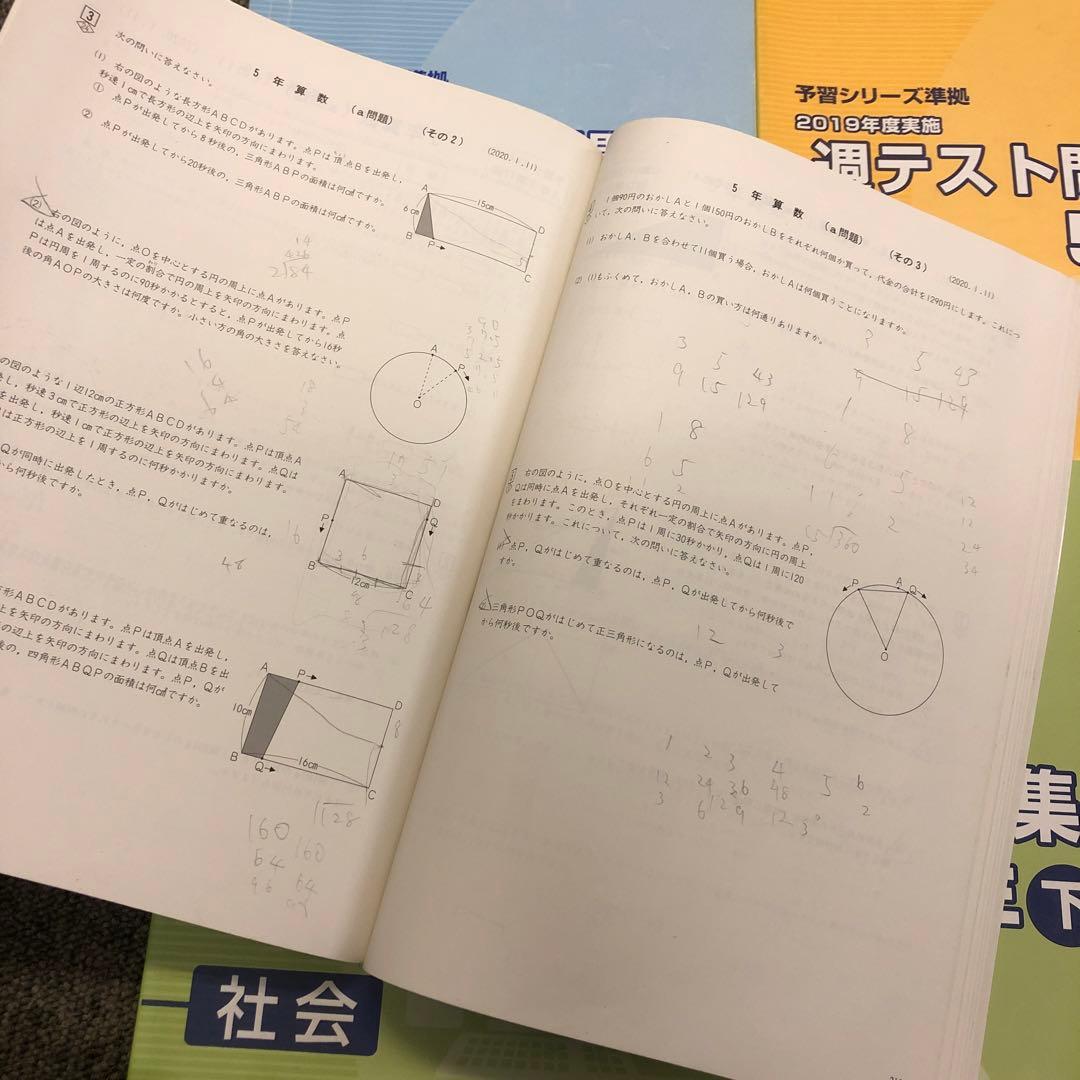 3
次の問いに答えなさい。
5年算数 (a問題) (その2)
(2020.1.11)
(1) 右の図のような長方形ABCDがあります。点Pは頂点Bを出発し,
秒速1cmで長方形の辺上を矢印の方向にまわります。
① 点Pが出発してから8秒後の,三角形ABPの面積は何c㎡ですか。
② 点Pが出発してから20秒後の,三角形ABPの面積は何c㎡ですか。
A
15cm
D
6cm
B
P→
C
(2) 右の図のように,点Oを中心とする円の周上に点Aがあります。点P
は点Aを出発し,一定の割合で円の周上を矢印の方向にまわります。点
Pは円周を1周するのに90秒かかるとすると,点Pが出発してから16秒
後の角AOPの大きさは何度ですか。小さい方の角の大きさを答えなさい。
A
P
O
の図のような1辺12cmの正方形ABCDがあります。点Pは頂点A
発し,秒速3cmで正方形の辺上を矢印の方向にまわります。点Qは
を出発し,秒速1cmで正方形の辺上を矢印の方向にまわります。
は正方形の辺上を1周するのに何秒かかりますか。
Qが同時に出発したとき,点P,Qがはじめて重なるのは,
から何秒後ですか。
A
D
P
Q
B
12cm
C
48
形ABCDがあります。点Pは頂点Aを出発し,
上を矢印の方向にまわります。点Qは頂点Bを出
の辺上を矢印の方向にまわります。点P,Qが
後の,四角形ABQPの面積は何c㎡ですか。
A
P→
D
10cm
8
B
Q→
16cm
C
160
160
64
64
96
5年算数 (a問題) (その3)
(2020.1.11)
1個90円のおかしAと1個150円のおかしBをそれぞれ何個か買って,代金の合計を1290円にします。これにつ
いて,次の問いに答えなさい。
(1) おかしA,Bを合わせて11個買う場合,おかしAは何個買うことになりますか。
(2) (1)もふくめて,おかしA,Bの買い方は何通りありますか。
3 5 43
9 15 129
1 8
6 5
3 5 43
8
5
2
12
12
24
右の図のように,点Oを中心とする円の周上に点Aがあります。点P,
Qは同時に点Aを出発し,それぞれ一定の割合で矢印の方向に円の周上
をまわります。このとき,点Pは1周に30秒かかり,点Qは1周に120
秒かかります。これについて,次の問いに答えなさい。
点P,Qがはじめて重なるのは,点P,Qが出発してから何秒後で
すか。
三角形POQがはじめて正三角形になるのは,点P,Qが出発して
から何秒後ですか。
P
A
Q
O
12 3
1 2 3 4 5 6
12 24 36 48
3 6 9 12
予習シリーズ準拠
2019年度実施
週テスト問
5
集
下
社会